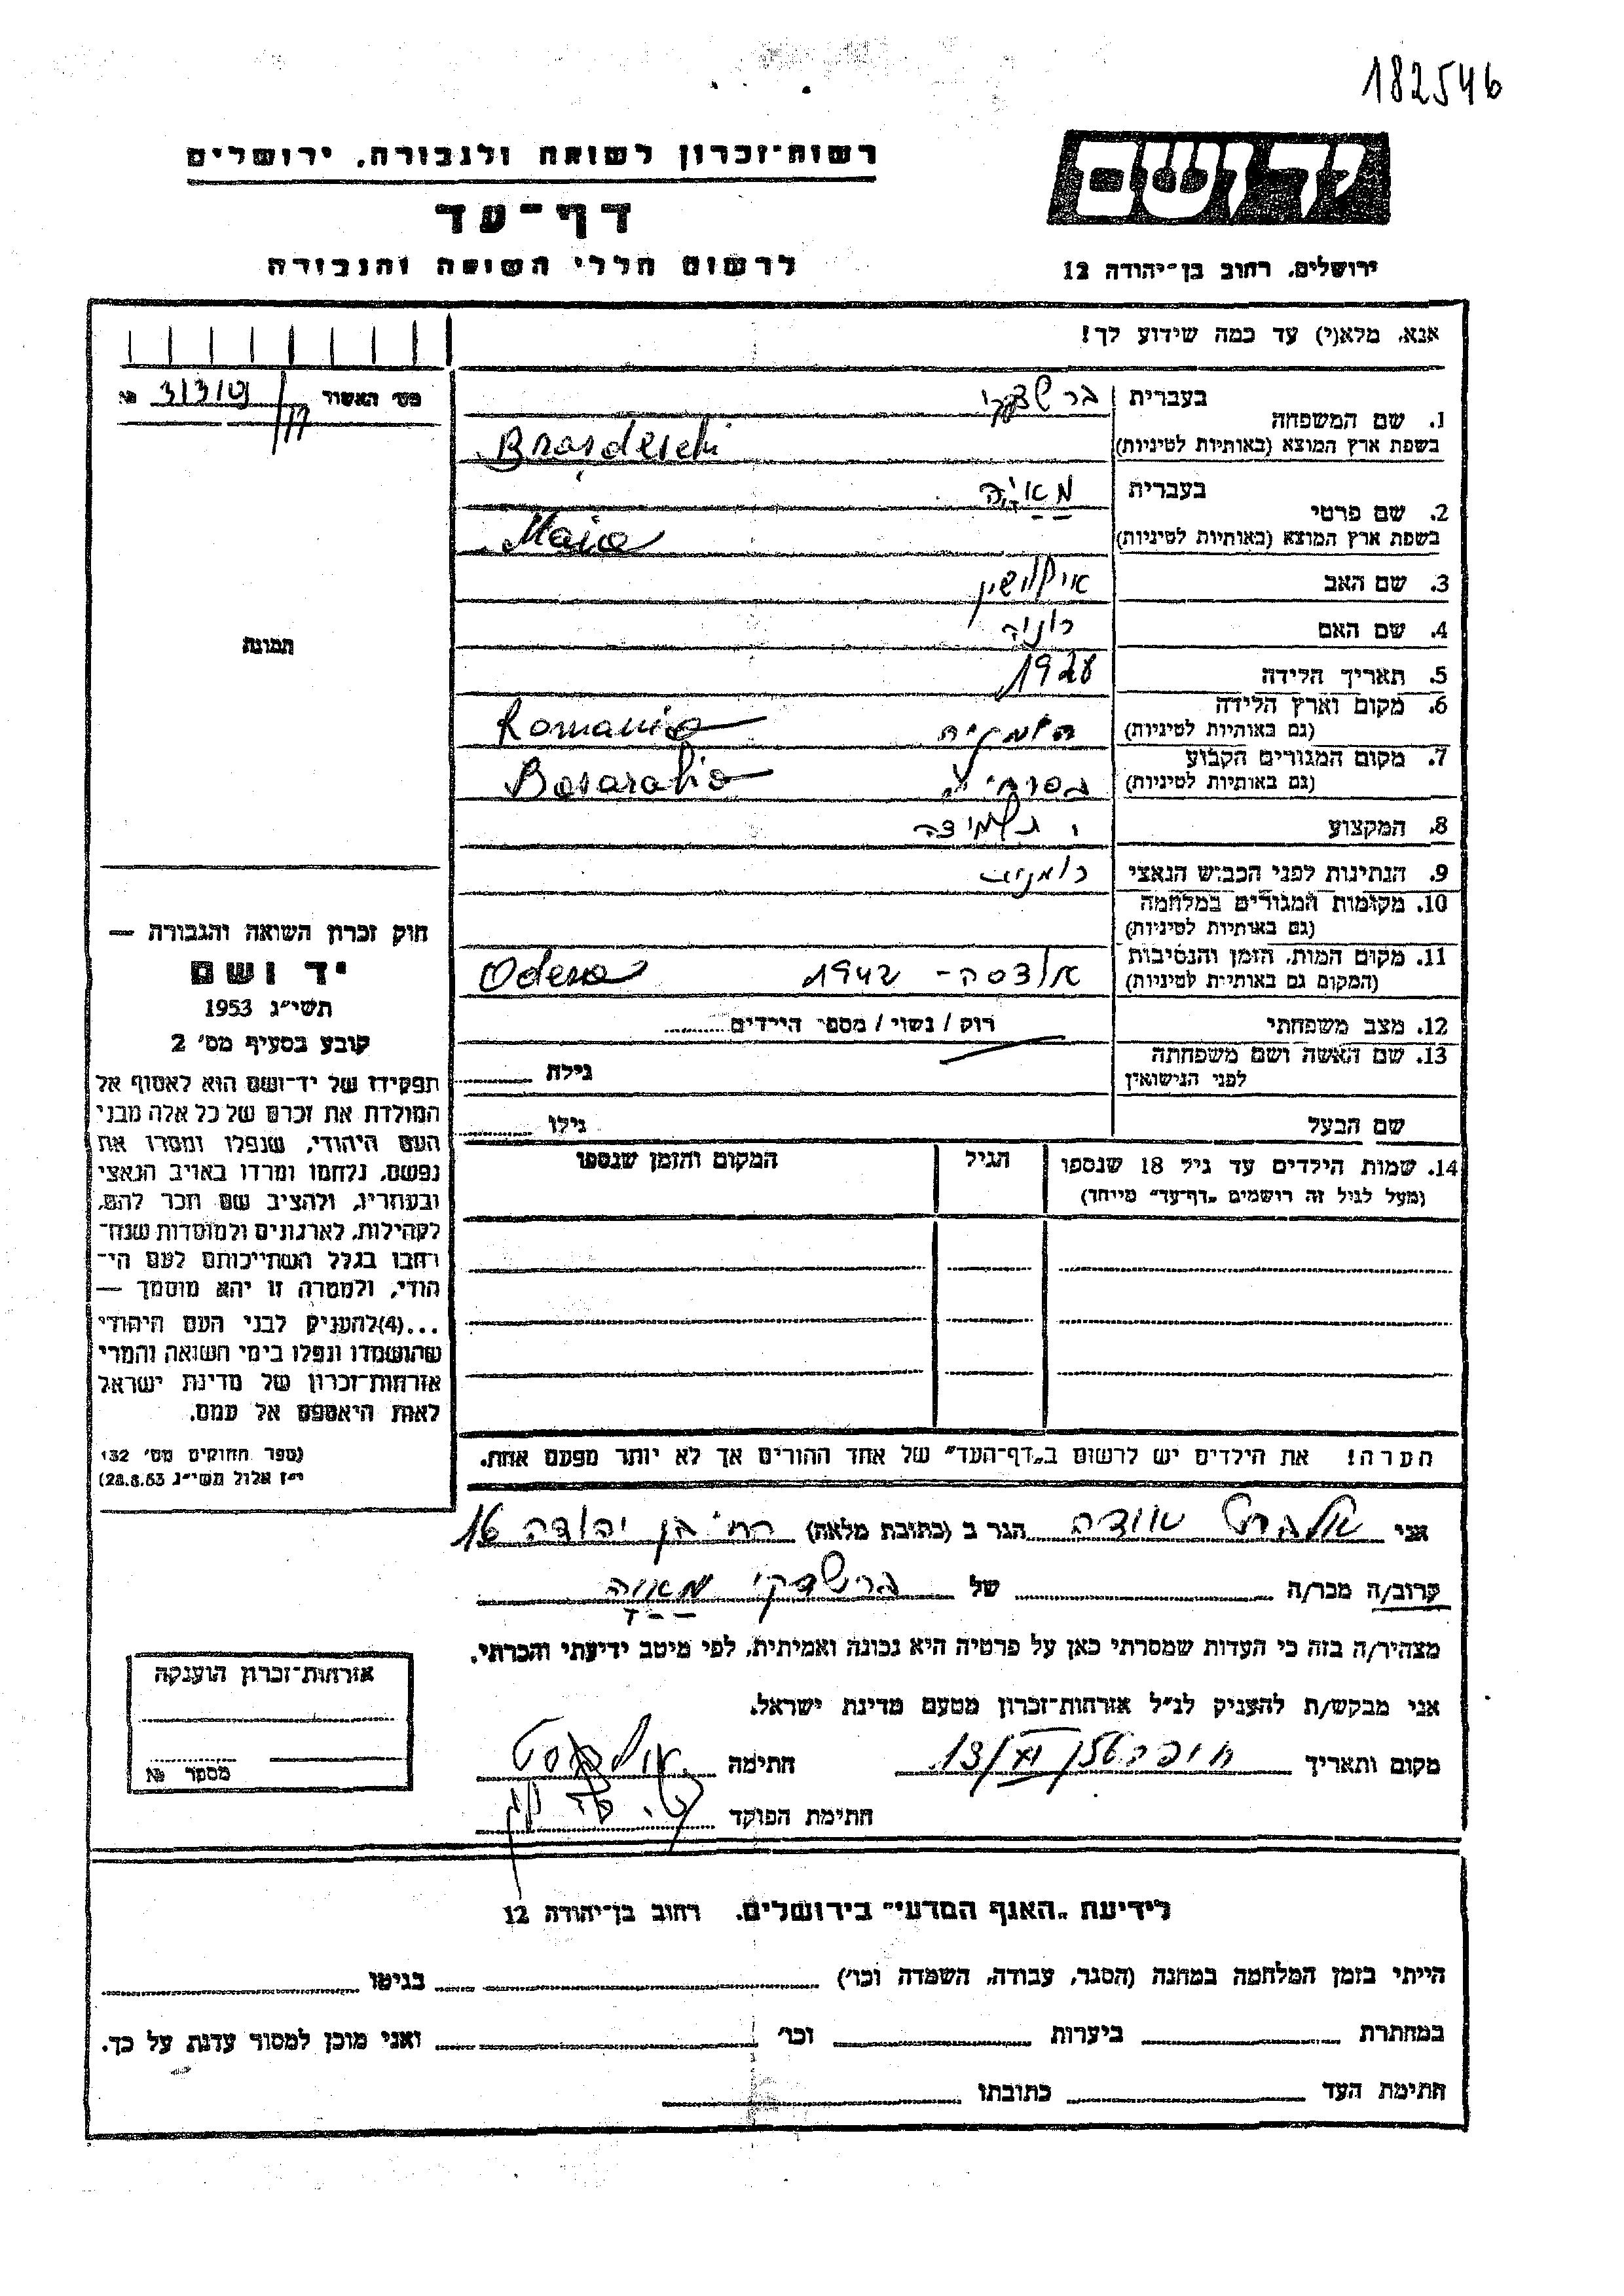 182546
רשות־זכרון לשואה ולגבורה, ירושלים
דף־עד
לרשום חללי השואה והגבורה
יד ושם
ירושלים, רחוב בן־יהודה 12
אנא, מלא(י) עד כמה שידוע לך!
מס׳ האשור № 3/3/09
1. שם המשפחה
בעברית ברשדקי
בשפת ארץ המוצא (באותיות לטיניות)
2. שם פרטי
בעברית מאיה
בשפת ארץ המוצא (באותיות לטיניות) Maia
3. שם האב
4. שם האם
5. תאריך הלידה 1928
6. מקום וארץ הלידה (גם באותיות לטיניות) רומניה Romania
7. מקום המגורים הקבוע (גם באותיות לטיניות) בסרביה Basarabia
8. המקצוע תלמידה
9. הנתינות לפני הכבוש הנאצי רומנית
10. מקומות המגורים במלחמה (גם באותיות לטיניות)
11. מקום המות, הזמן והנסיבות (המקום גם באותיות לטיניות) אודסה - 1942 Odesa
12. מצב משפחתי רווק / נשוי / מספר הילדים
13. שם האשה ושם משפחתה לפני הנישואין גילה
שם הבעל גילו
14. שמות הילדים עד גיל 18 שנספו
(מעל לגיל זה רושמים „דף־עד״ מייחד)
הגיל
המקום והזמן שנספו
תמונה
חוק זכרון השואה והגבורה —
יד ושם
תשי״ג 1953
קובע בסעיף מס׳ 2
תפקידו של יד־ושם הוא לאסוף אל
המולדת את זכרם של כל אלה מבני
העם היהודי, שנפלו ומסרו את
נפשם, נלחמו ומרדו באויב הנאצי
ובעוזריו, ולהציב שם וזכר להם,
לקהילות, לארגונים ולמוסדות שנח־
רבו בגלל השתייכותם לעם הי־
הודי, ולמטרה זו יהא מוסמך —
...(4)להעניק לבני העם היהודי
שהושמדו ונפלו בימי השואה והמרי
אזרחות־זכרון של מדינת ישראל
לאות היאספם אל עמם.
(ספר החוקים מס׳ 132
י״ז אלול תשי״ג 28.8.53)
הערה! את הילדים יש לרשום ב„דף־העד״ של אחד ההורים אך לא יותר מפעם אחת.
אני הגר ב (כתובת מלאה) רח׳ בן יהודה 16
קרוב/ה מכר/ה של ברשדקי מאיה
מצהיר/ה בזה כי העדות שמסרתי כאן על פרטיה היא נכונה ואמיתית, לפי מיטב ידיעתי והכרתי.
אני מבקש/ת להעניק לנ״ל אזרחות־זכרון מטעם מדינת ישראל.
מקום ותאריך חתימה
חתימת הפוקד
אזרחות־זכרון הוענקה
מספר №
לידיעת „האגף המדעי״ בירושלים, רחוב בן־יהודה 12
הייתי בזמן המלחמה במחנה (הסגר, עבודה, השמדה וכו׳) בגיטו
במחתרת ביערות וכו׳ ואני מוכן למסור עדות על כך.
חתימת העד כתובתו